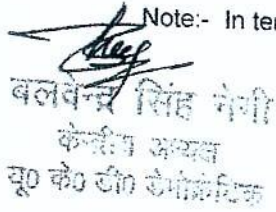 Note:- In ter
बलवेन्द्र सिंह नेगी
केन्द्रीय अध्यक्ष
यू० के० डी० डेमोक्रेटिक